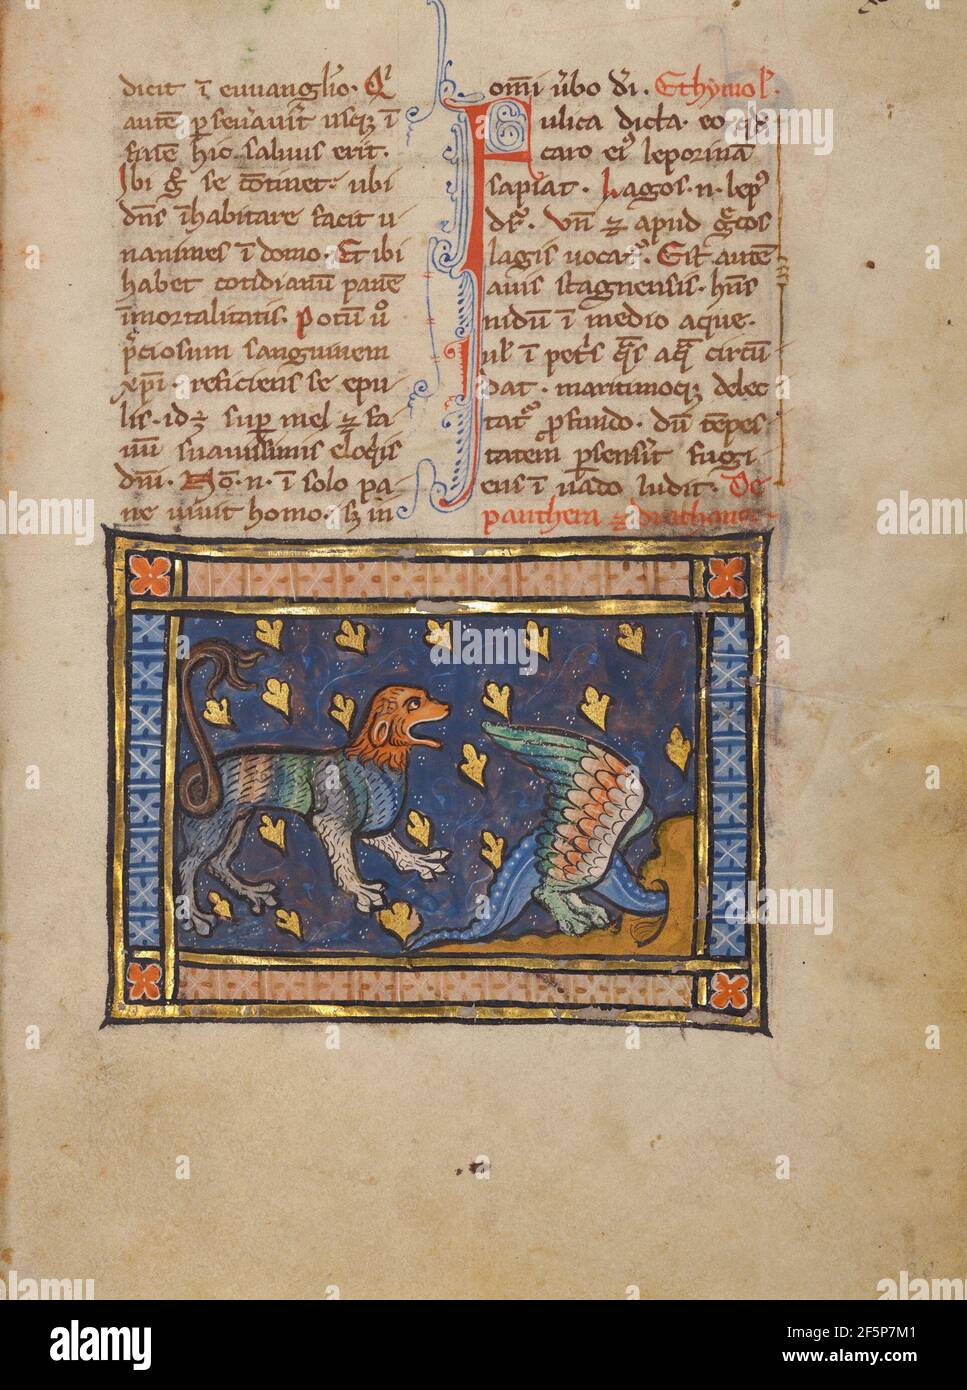 dicit ī euuanglio. Qͥ
autē pseuaūit usqꝫ ī
finē hic saluus erit.
Ibi gͦ se cōtinet. ubi
dn̄s īhabitare facit u
nanimes ī domo. Et ibi
habet cotidianū panē
īmortalitatis. Potū uͦ
pͥciosum sanguinem
xp̄i. reficiens se epu
lis. idꝫ sup mel ⁊ fa
uū suauissimis eloqͥis
dn̄i. Nō. n. ī solo pa
ne uiuit homo. sꝫ in
om̄i ūbo di. Ethymol.
Fulica dicta. eo qd
caro eiꝰ leporinā
sapiat. Lagos. n. lepꝰ
dr̄. Vn̄ ⁊ apud gͣcos
lagis uocatᷣ. Est autē
auis stagnensis. hn̄s
nidū ī medio aque.
ul ī petͥs qͣs aq̄ circū
dat. maritimoqꝫ delec
tatᷣ pfundo. dū tēpes
tatem psensit fugi
ens ī uado ludit. De
panthera ⁊ drachone
alamy
Image ID: 2F5P7M1
www.alamy.com